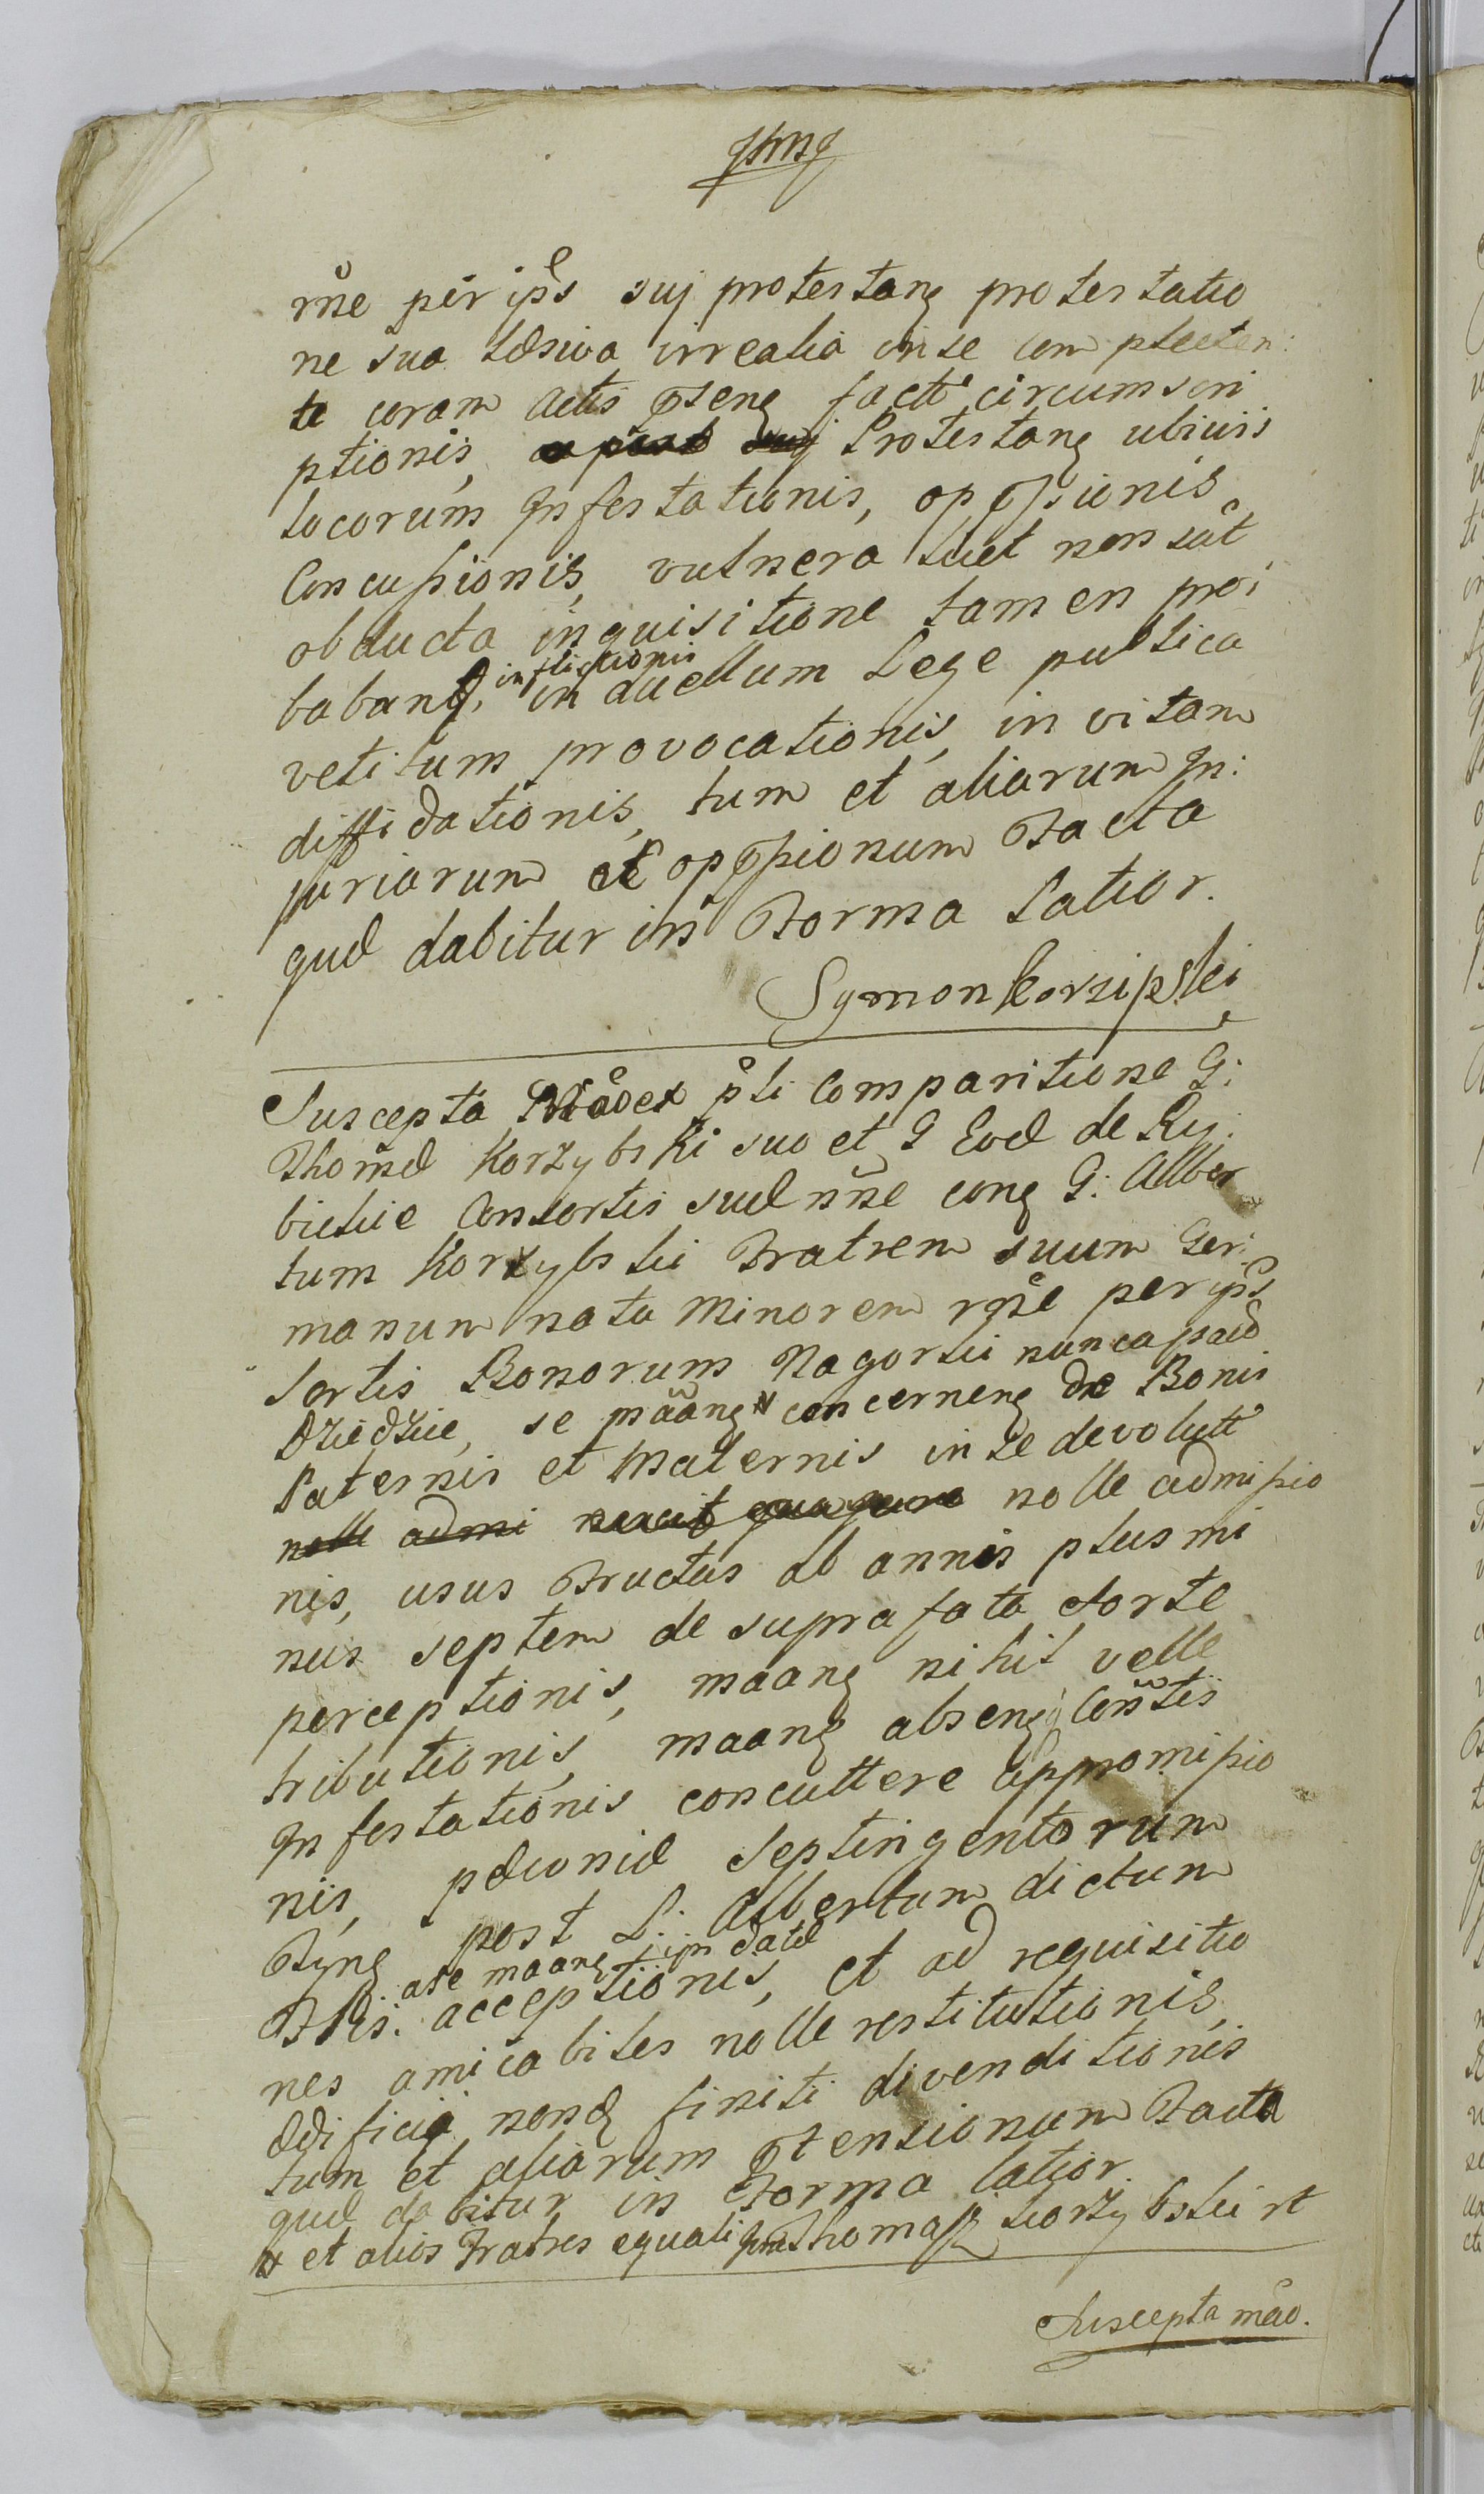 rñe per ips suj protestanꝫ protestatio
ne sua læsiva irrealia in se complecten:
te coram Actis pseng factt circumscri
ptionis, Protestanꝫ ubivis
locorum Infestationis, oppssionis
Concussionis, vulnera licet non sat
obducta inquisitione tamen proi
baband, inflictionis in duellum Lege publica
vetitum provocationis, in vitam
diffidationis, tum et aliarum In:
juriarum et oppssionum Facta
quæ dabitur in Forma Latior.
Symon Korzipski
Suscepta pli Comparitione G:
Thomæ Korzybski suo et G Evæ de Ry:
bickie Consortis suæ nñe conꝫ G: Alber
tum Korzybski Fratrem suum Ger:
manum natu Minorem rñe per ips
Sortis Bonorum Nagorki nuncapaio
Dziedzice, se mãanꝫ # concernenꝫ de Bonis
Paternis et Maternis in se devolutt
nolle admi nolle admissio
nis, usus Fructus ab annis plus mi
nus septem de suprafata Sorte
perceptionis, maanꝫ nihil velle
tributionis, maanꝫ absenꝫ Conñtis
Infestationis concuttere appromissio
nis, pecuniæ Septingentorum
Fynꝫ post L: Albertum dictum
a se maanꝫ ipi datæ
Flis: acceptionis, et ad requisitio
nes amicabiles nolle restitutionis,
Ædificij nondꝫ finiti divenditionis
tum et aliarum ptensionum Facta
quæ dabitur in Forma latior.
# et alios Fratres equali Thomasz Korzybski rt
Suscepta mão.